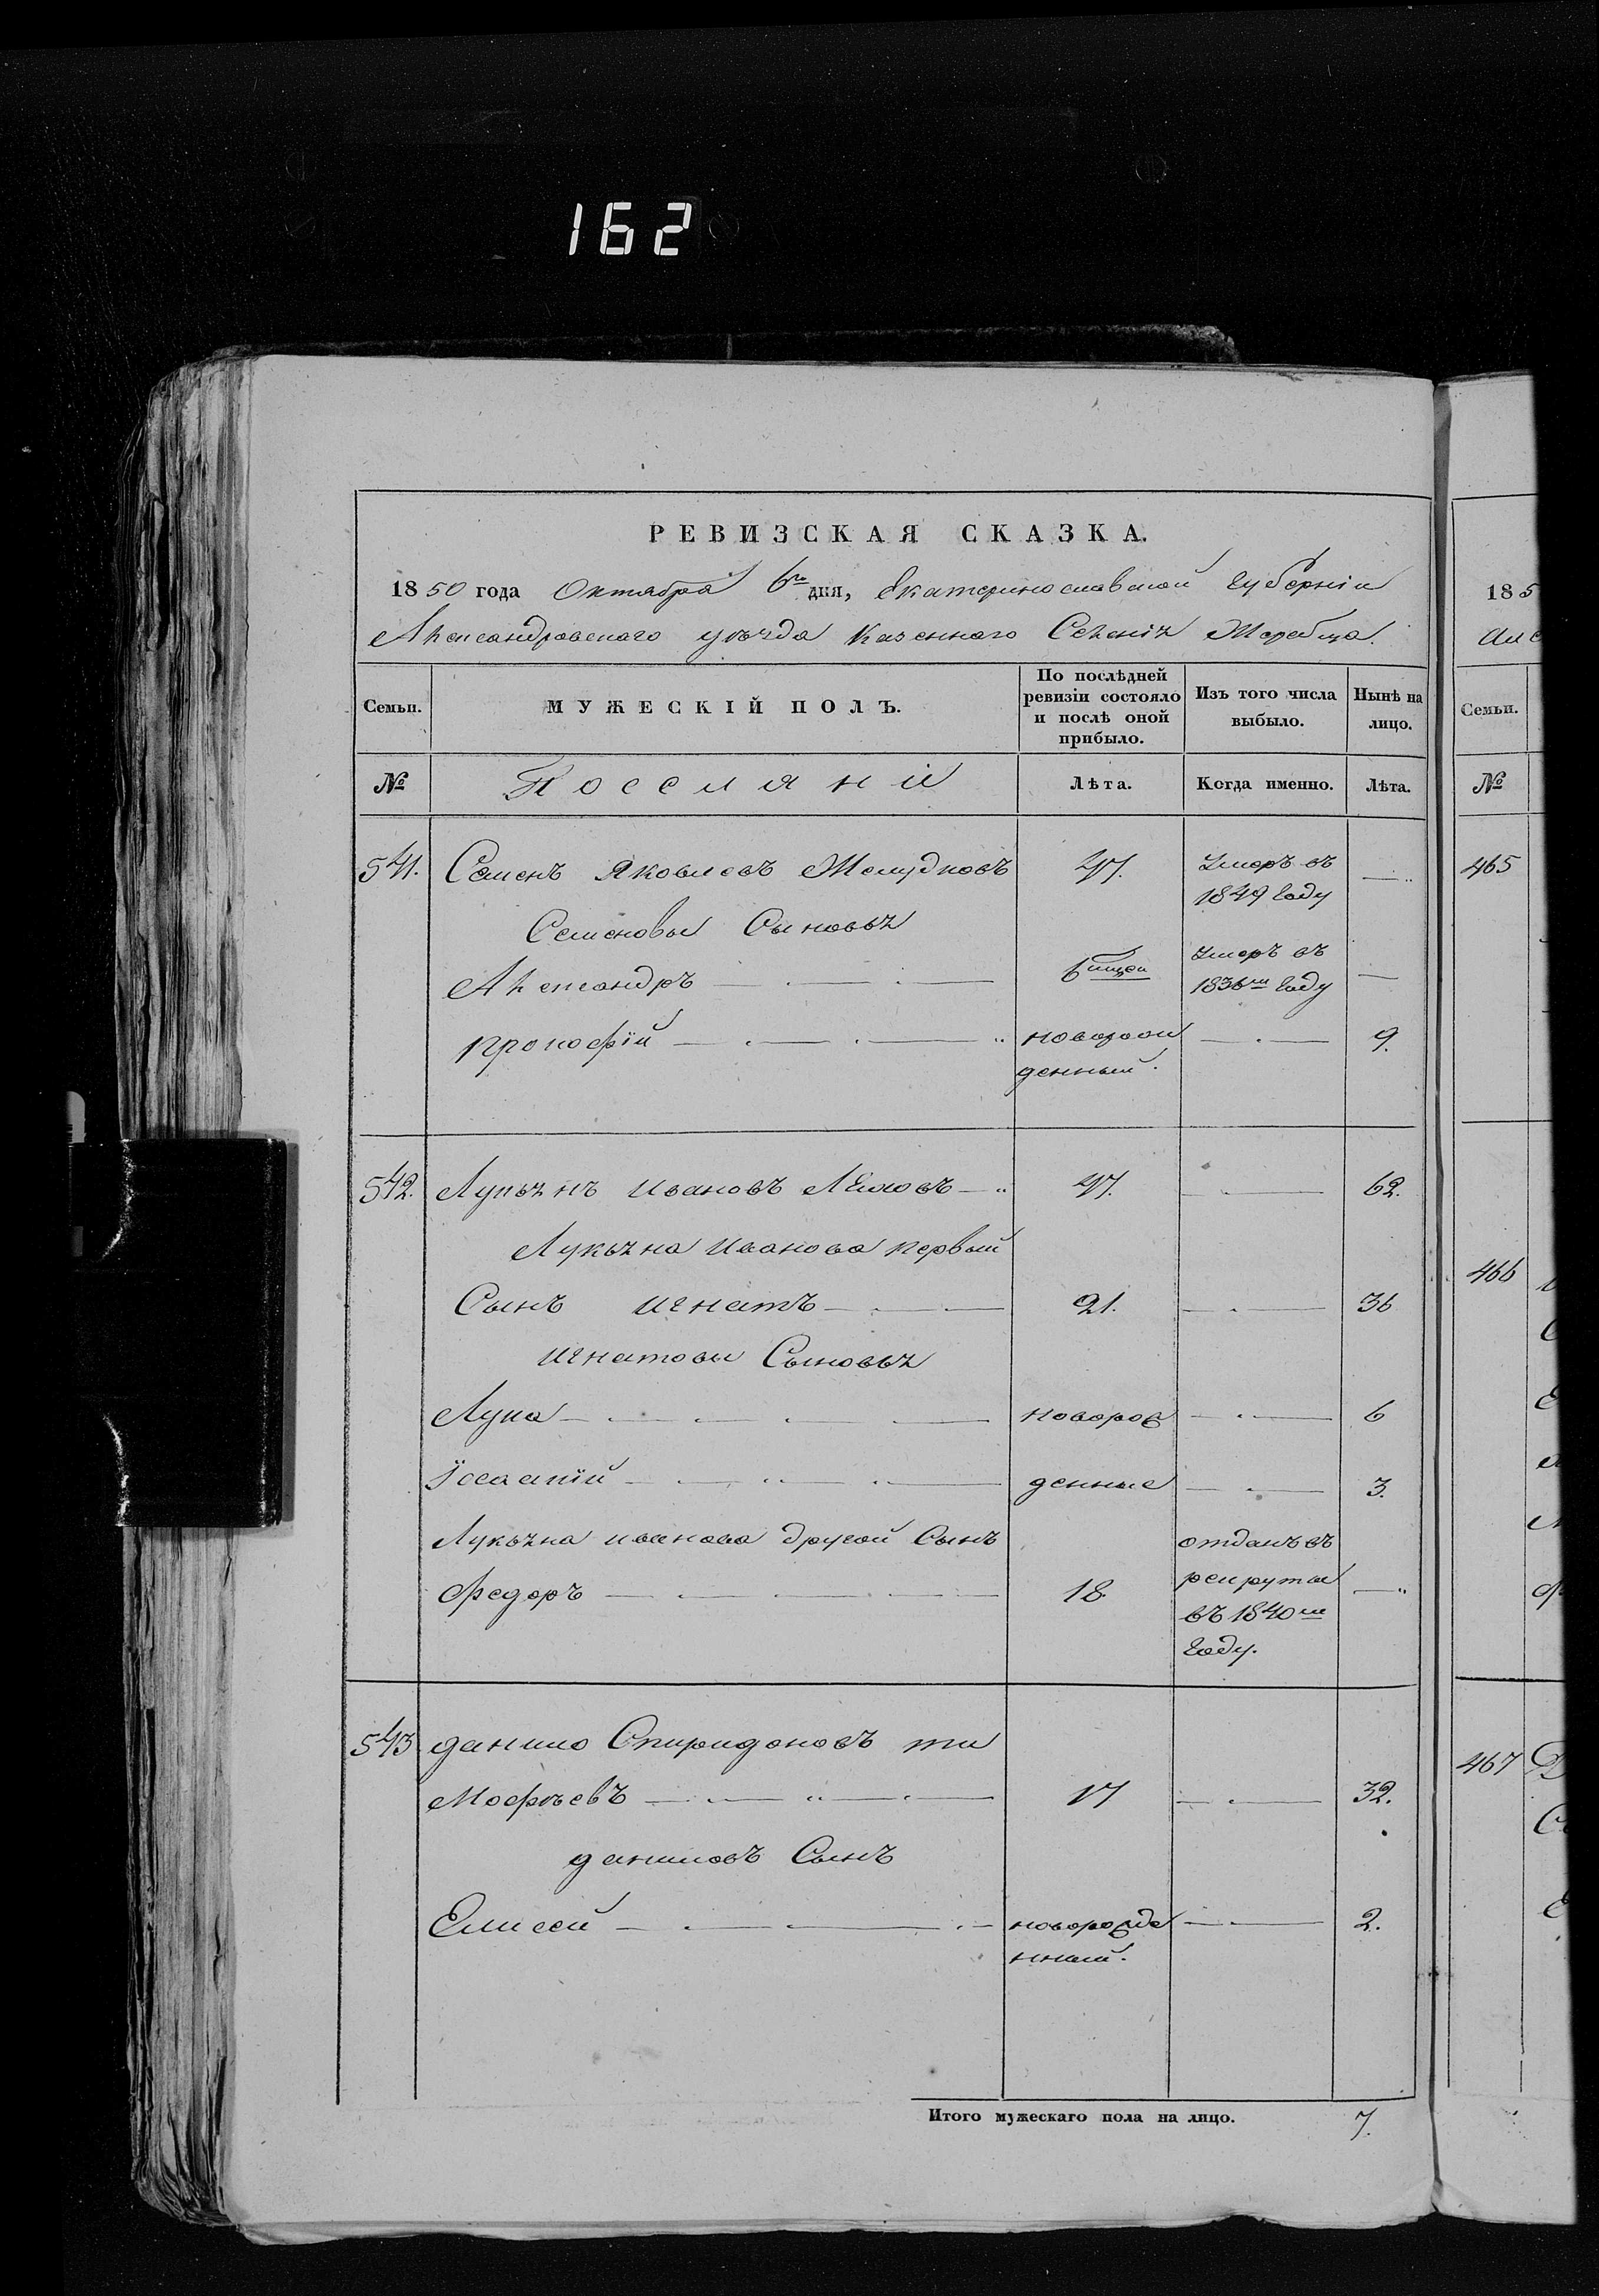 162
РЕВИЗСКАЯ СКАЗКА.
1850 года Октября 6го дня, Екатеринославской Губерніи
Александровскаго уѣзда Казеннаго Селенія Жеребца.
Семьи.
МУЖЕСКІЙ ПОЛЪ.
По послѣдней ревизіи состояло и послѣ оной прибыло.
Изъ того числа выбыло.
Нынѣ на лицо.
№ Поселяни Лѣта. Когда именно. Лѣта.
541. Семенъ Яковлевъ Желудковъ 47. Умеръ въ
1849 году
Семеновы Сыновья
Александръ 6 Умеръ въ
1836м году
Прокофій новорож 9.
денный.
542. Лукьянъ Ивановъ 47. 62.
Лукьяна Иванова первый
Сынъ Игнатъ 21. 36
Игнатовы Сыновья
Лука новорож 6
денные 3.
Лукьяна Иванова другой Сынъ отданъ въ
Федоръ 18. рекруты
въ 1840м
году.
543 Данило Спиридоновъ ти
мофѣевъ 17 32.
Даниловъ Сынъ
Елисей новорожде 2.
нный.
Итого мужескаго пола на лицо. 7.
185
Але
Семьи.
№
465
466
467